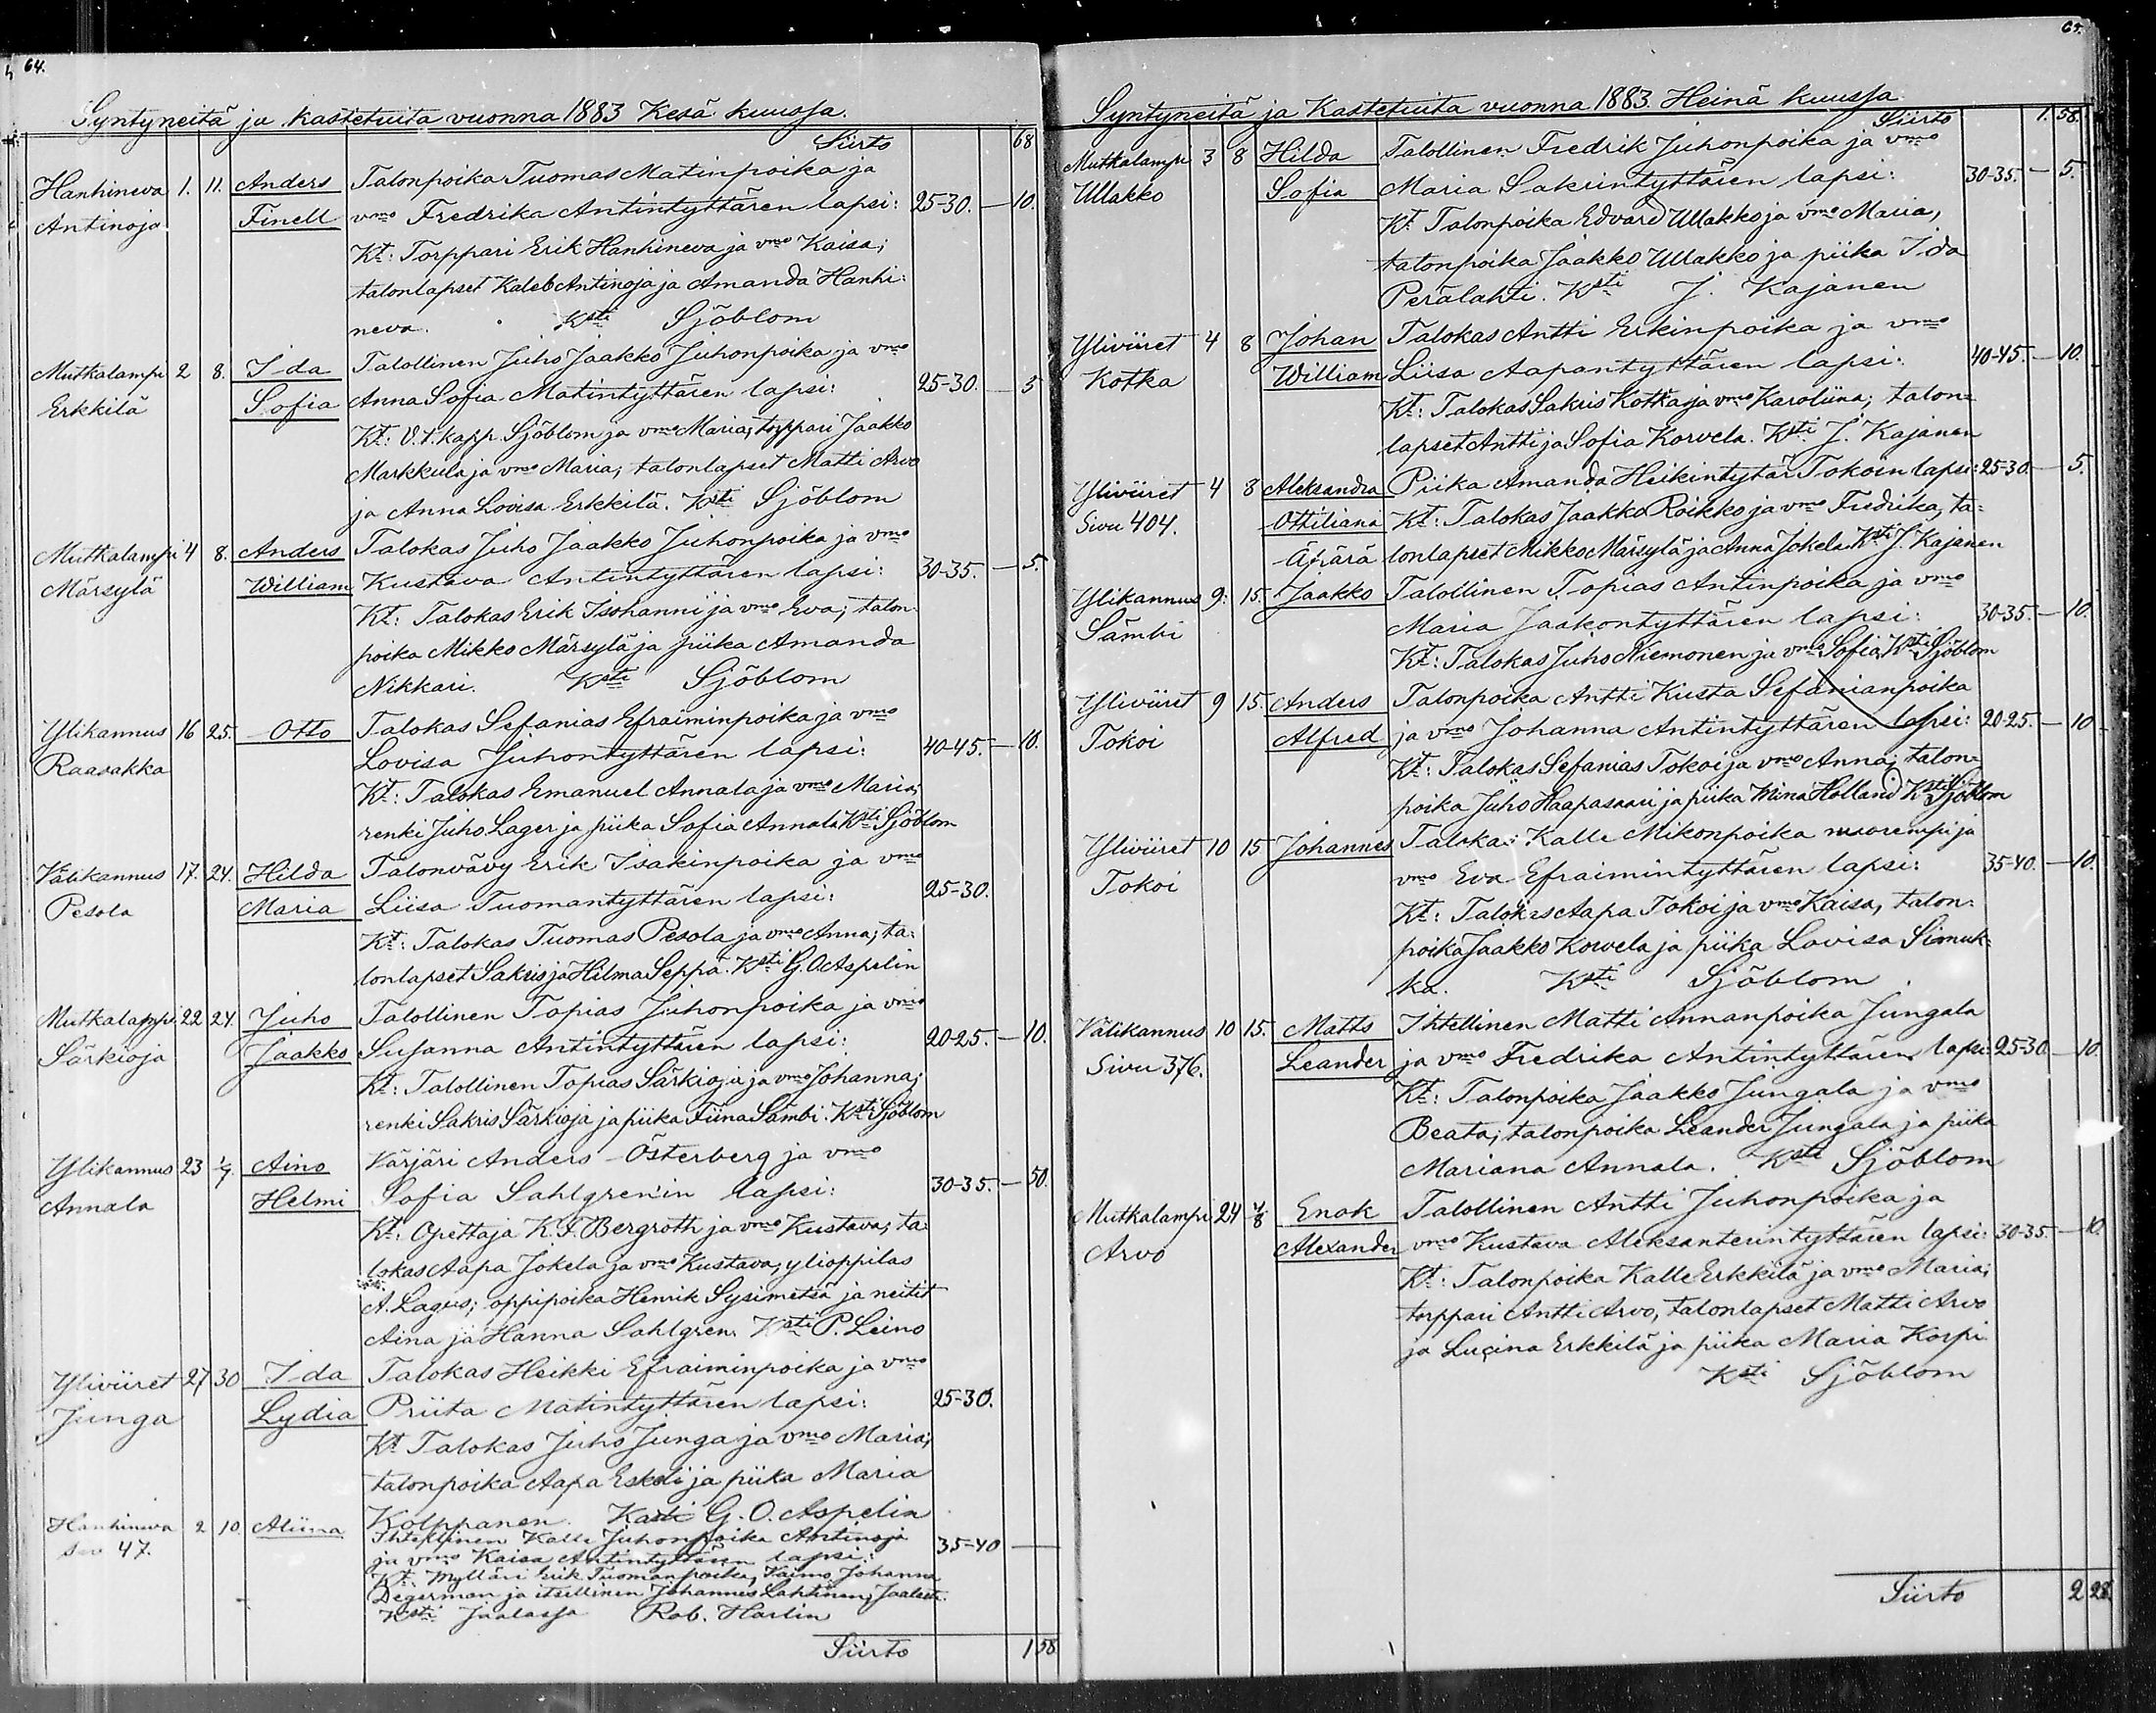 64.
Syntyneitä ja kastetuita vuonna 1883 Kesä kuussa.
Siirto 68
Hanhineva 1. 11. Anders Talonpoika Tuomas Matinpoika ja
Antinoja Finell vmo Fredrika Antintyttären lapsi: 25-30. — 10.
Kt: Torppari Erik Hanhineva ja vmo Kaisa;
talonlapset Kaleb Antinoja ja Amanda Hanhi:
neva. Ksti Sjöblom
Mutkalampi 2 8. Ida Talollinen Juho Jaakko Juhonpoika ja vmo
Erkkilä Sofia Anna Sofia Matintyttären lapsi: 25-30. — 5
Kt: V.t. kapp. Sjöblom ja vmo Maria; torppari Jaakko
Markkula ja vmo Maria; talonlapset Matti Arvo
ja Anna Lovisa Erkkilä. Ksti Sjöblom
Mutkalampi 4 8. Anders Talokas Juho Jaakko Juhonpoika ja vmo
Märsylä William Kustava Antintyttären lapsi: 30-35. — 5.
Kt: Talokas Erik Isohanni ja vmo Eva; talon
poika Mikko Märsylä ja piika Amanda
Nikkari. Ksti Sjöblom
Ylikannus 16 25. Otto Talokas Sefanias Efraiminpoika ja vmo
Raasakka Lovisa Juhontyttären lapsi: 40-45. — 10.
Kt: Talokas Emanuel Annala ja vmo Maria;
renki Juho Lager ja piika Sofia Annala Ksti Sjöblom
Välikannus 17. 24. Hilda Talonvävy Erik Isakinpoika ja vmo
Pesola Maria Liisa Tuomantyttären lapsi: 25-30.
Kt: Talokas Tuomas Pesola ja vmo Anna; ta:
lonlapset Sakris ja Hilma Seppä. Ksti G. O. Aspelin
Mutkalampi 22 24. Juho Talollinen Topias Juhonpoika ja vmo
Särkioja Jaakko Susanna Antintyttären lapsi: 20-25. — 10.
Kt: Talollinen Topias Särkioja ja vmo Johanna;
renki Sakris Särkioja ja piika Fiina Sämbi. Ksti Sjöblom
Ylikannus 23 1/7. Aino Värjäri Anders Österberg ja vmo
Annala Helmi Sofia Sahlgrenin lapsi: 30-35. — 50.
Kt: Opettaja K. F. Bergroth ja vmo Kustava; ta:
lokas Aapa Jokela ja vmo Kustava; ylioppilas
A. Lagus; oppipoika Henrik Sysimetsä ja neitit
Aina ja Hanna Sahlgren. Ksti P. Leino
Yliviiret 27 30 Ida Talokas Heikki Efraiminpoika ja vmo
Junga Lydia Priita Matintyttären lapsi: 25-30.
Kt Talokas Juho Junga ja vmo Maria;
talonpoika Aapa Eskoli ja piika Maria
Kolppanen. Kasti G. O. Aspelin
Hanhineva 2 10 Aliina Ihtellinen Kalle Juhonpoika Antinoja
siv 47. ja vmo Kaisa Antintyttären lapsi: 35-40 —
Kt: Mylläri Erik Tuomanpoika, vaimo Johanna
Degerman ja itsellinen Johannes Lahtinen, Jaalasta.
Ksti Jaalassa Rob. Harlin
Siirto 1 58
65.
Syntyneitä ja Kastetuita vuonna 1883. Heinä kuussa
Siirto 1. 58.
Mutkalampi 3 8 Hilda Talollinen Fredrik Juhonpoika ja vmo
Ullakko Sofia Maria Sakrintyttären lapsi: 30-35. — 5.
Kt. Talonpoika Edvard Ullakko ja vmo Maria,
talonpoika Jaakko Ullakko ja piika Ida
Perälahti. Ksti J. Kajanen
Yliviiret 4 8 Johan Talokas Antti Erkinpoika ja vmo
Kotka William Liisa Aapantyttären lapsi: 40-45. — 10.
Kt: Talokas Sakris Kotka ja vmo Karoliina; talon=
lapset Antti ja Sofia Korvela. Ksti J. Kajanen
Yliviiret 4 8 Aleksandra Piika Amanda Heikintytär Tokoin lapsi: 25-30. — 5.
Sivu 404. Ottiliana Kt: Talokas Jaakko Roikko ja vmo Fredrika, ta:
Äpärä lonlapset Mikko Märsylä ja Anna Jokela. Ksti J. Kajanen
Ylikannus 9. 15. Jaakko Talollinen Topias Antinpoika ja vmo
Sämbi Maria Jaakontyttären lapsi: 30-35. — 10.
Kt: Talokas Juho Niemonen ja vmo Sofia. Ksti Sjöblom
Yliviiret 9 15. Anders Talonpoika Antti Kusta Sefanianpoika
Tokoi Alfred ja vmo Johanna Antintyttären lapsi: 20-25. — 10
Kt: Talokas Sefanias Tokoi ja vmo Anna; talon=
poika Juho Haapasaari ja piika Mina Holland Ksti Sjöblom
Yliviiret 10 15 Johannes Talokas Kalle Mikonpoika nuorempi ja
Tokoi vmo Eva Efraimintyttären lapsi: 35-40. — 10.
Kt: Talokas Aapa Tokoi ja vmo Kaisa, talon:
poika Jaakko Korvela ja piika Lovisa Simuk:
ka. Ksti Sjöblom
Välikannus 10 15. Matts Ihtellinen Matti Annanpoika Jungala
Sivu 376. Leander ja vmo Fredrika Antintyttären lapsi: 25-30 — 10.
Kt: Talonpoika Jaakko Jungala ja vmo
Beata; talonpoika Leander Jungala ja piika
Mariana Annala. Ksti Sjöblom
Mutkalampi 24 4/8 Enok Talollinen Antti Juhonpoika ja
Arvo Alexander vmo Kustava Aleksanterintyttären lapsi: 30-35. — 10.
Kt: Talonpoika Kalle Erkkilä ja vmo Maria;
torppari Antti Arvo, talonlapset Matti Arvo
ja Lucina Erkkilä ja piika Maria Korpi
Ksti Sjöblom
Siirto 2 28.